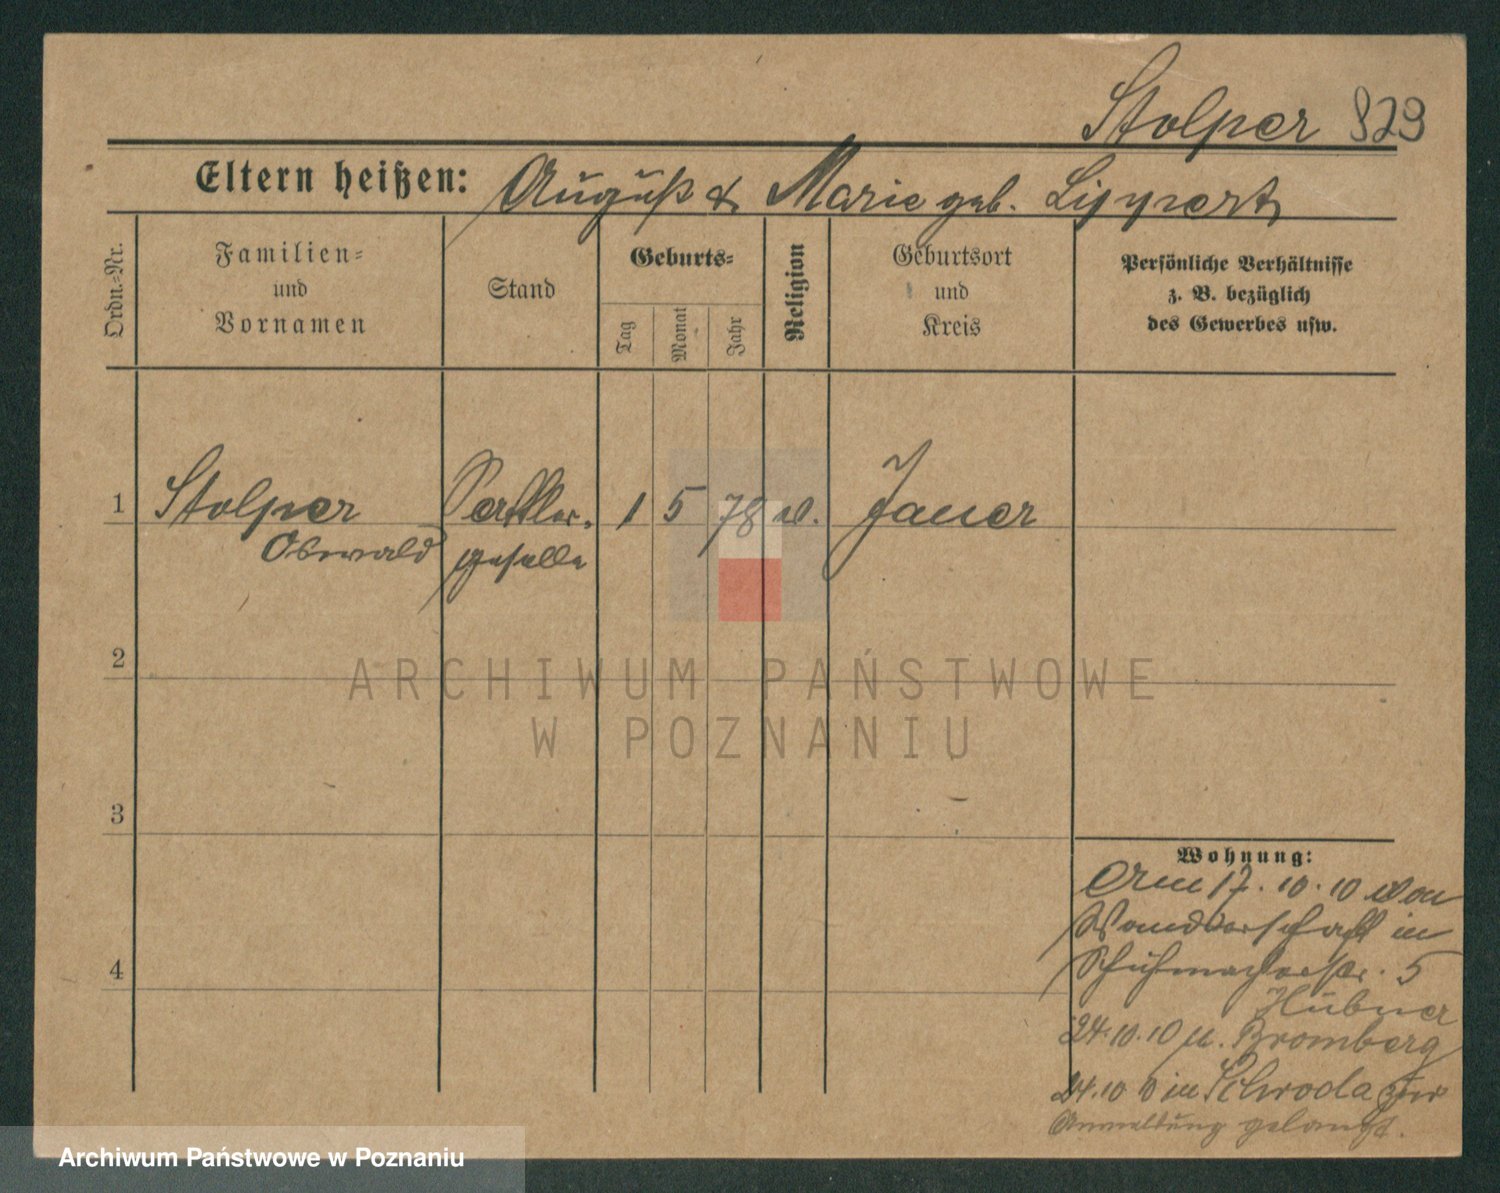 Stolper 829
Eltern heißen: August & Marie geb. Lippert
Ordn.=Nr.
Familien=
und
Vornamen
Stand
Geburts=
Tag
Monat
Jahr
Religion
Geburtsort
und
Kreis
Persönliche Verhältnisse
z. B. bezüglich
des Gewerbes usw.
1 Stolper Sattler. 1 5 78 Jauer
Oswald geselle
2
3
4
Wohnung:
17.10.10 von
Wanderschaft in
Schuhmacherstr. 5
Hübner
24.10.10 n. Bromberg
24.10 10 in Schroda zur
Anmeldung gelangt.
ARCHIWUM PAŃSTWOWE
W POZNANIU
Archiwum Państwowe w Poznaniu